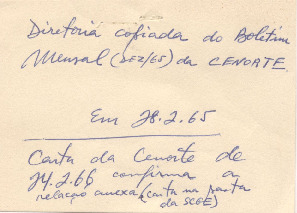 Diretoria copiada do Boletim
Mensal (DEZ/65) da CENORTE.
Em 28.2.65
Carta da Cenorte de
24.2.66 confirma a
relação anexa (carta na pasta
da SCGE)